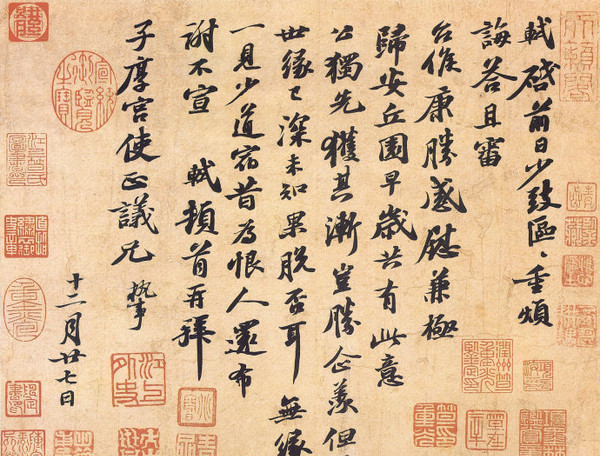 軾啓前日少致區〻重煩
誨答且審
台候康勝感慰兼極
歸安丘園早歲共有此意
公獨先獲其漸豈勝企羨但
世緣已深未知果脫否耳無緣
一見少道宿昔為恨人還布
謝不宣 軾頓首再拜
子厚宮使正議兄 執事
十二月廿七日
宣統御覽之寶
江上外史